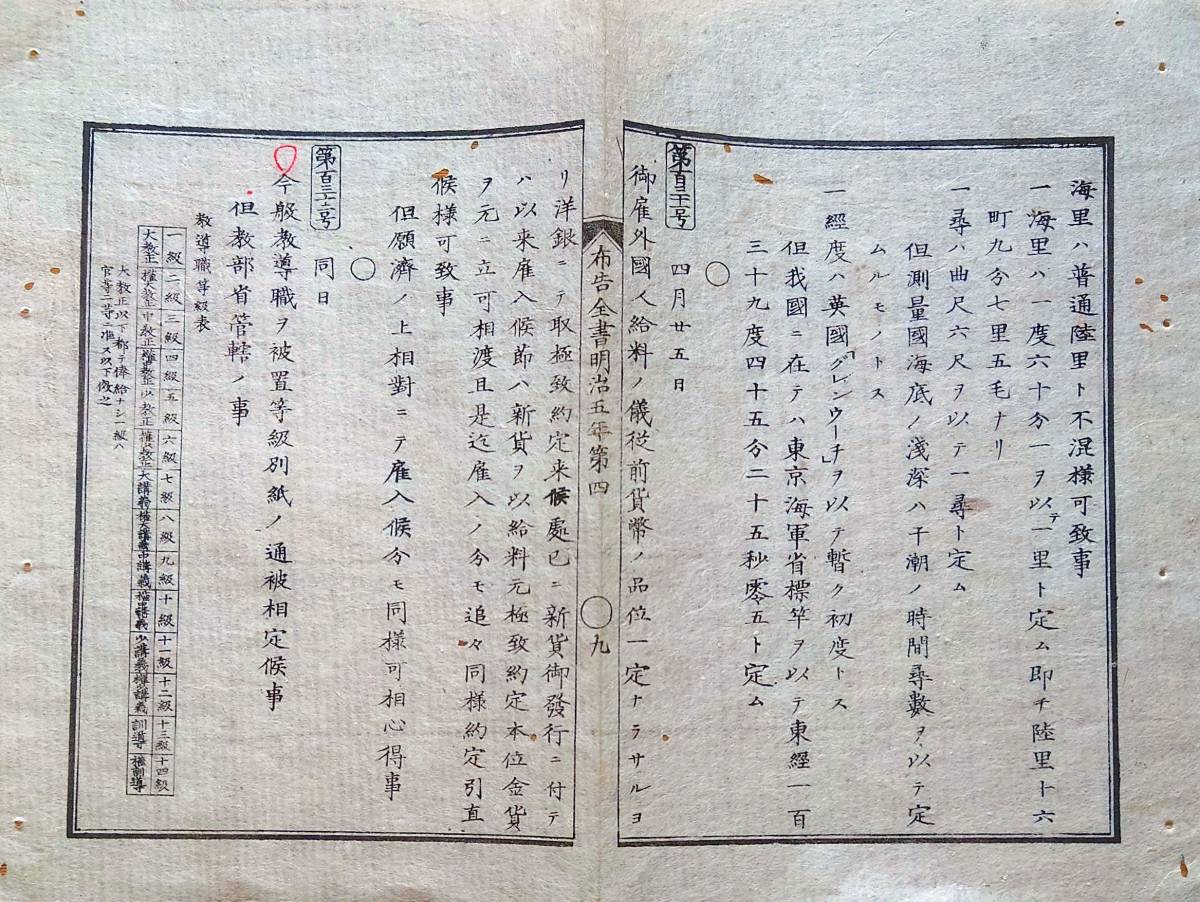 海里ハ普通陸里ト不混様可致事
一海里ハ一度六十分一ヲ以テ一里ト定ム即チ陸里十六
町九分七里五毛ナリ
一尋ハ曲尺六尺ヲ以テ一尋ト定ム
但測量國海底ノ淺深ハ干潮ノ時間尋數ヲ以テ定
ムルモノトス
一經度ハ英國「グレンウーチ」ヲ以テ暫ク初度トス
但我國ニ在テハ東京海軍省標竿ヲ以テ東經一百
三十九度四十五分二十五秒零五ト定ム
○
第百三十一号
四月廿五日
御雇外國人給料ノ儀従前貨幣ノ品位一定ナラサルヨ
布告全書明治五年第四
○九
リ洋銀ニテ取極致約定来候處已ニ新貨御發行ニ付テ
ハ以来雇入候節ハ新貨ヲ以給料元極致約定本位金貨
ヲ元ニ立可相渡且是迄雇入ノ分モ追々同様約定引直
候様可致事
但願濟ノ上相對ニテ雇入候分モ同様可相心得事
○
第百三十二号
同日
今般教導職ヲ被置等級別紙ノ通被相定候事
但教部省管轄ノ事
教導職等級表
一級 二級 三級 四級 五級 六級 七級 八級 九級 十級 十一級 十二級 十三級 十四級
大教正 權大教正 中教正 權中教正 少教正 權少教正 大講義 權大講義 中講義 權中講義 少講義 權少講義 訓導 權訓導
大教正以下都テ俸給ナシ一級ハ
官等二等ニ准ス以下傚之